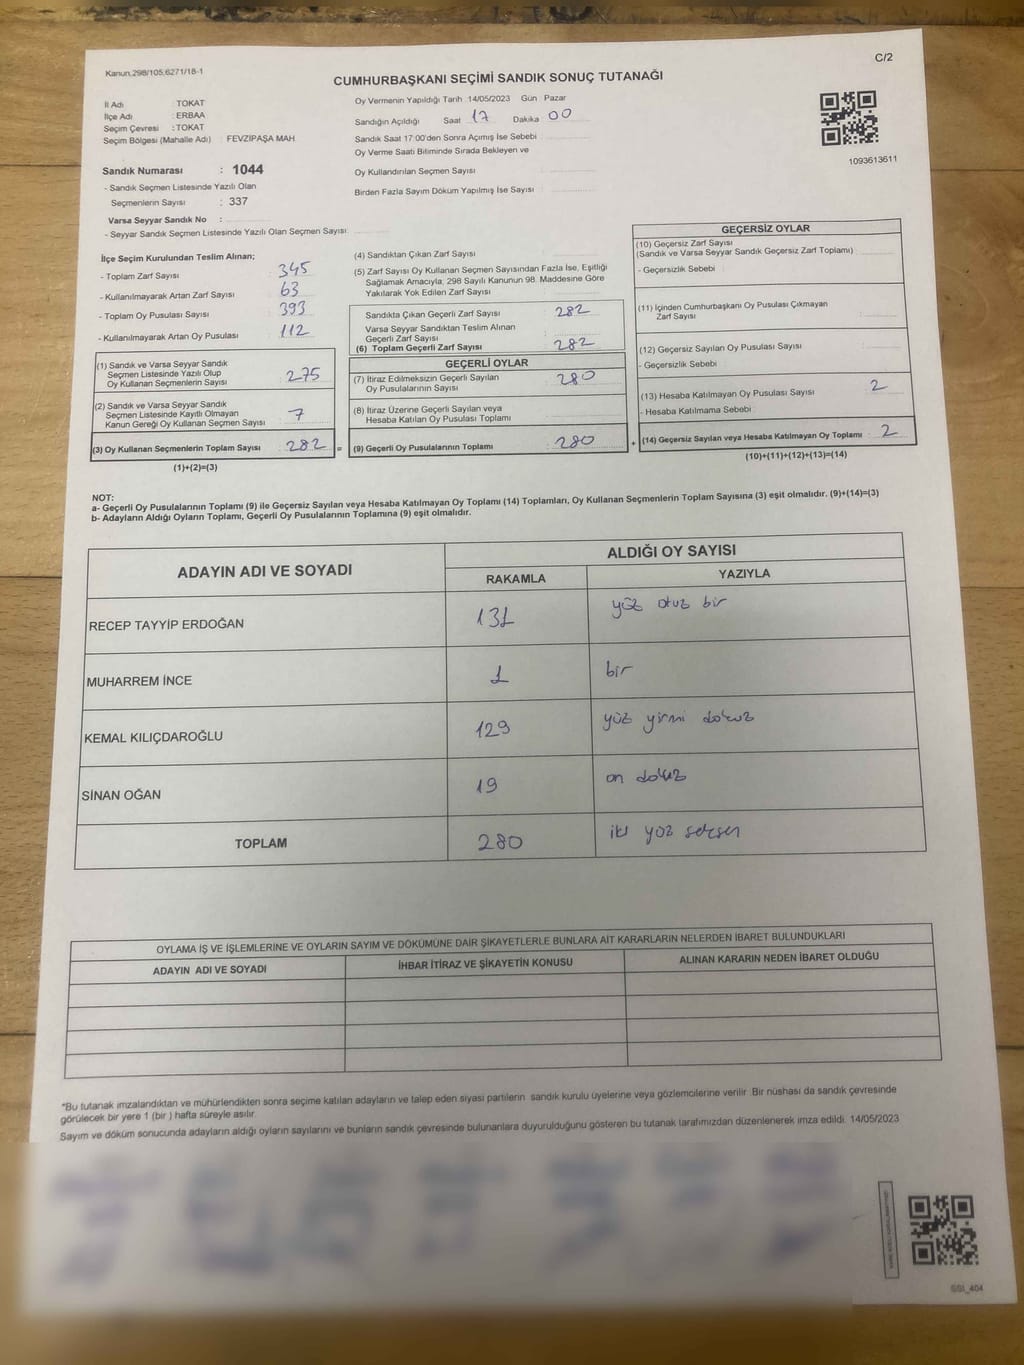 Kanun.298/105;6271/18-1
C/2
CUMHURBAŞKANI SEÇİMİ SANDIK SONUÇ TUTANAĞI
İl Adı : TOKAT
İlçe Adı : ERBAA
Seçim Çevresi : TOKAT
Seçim Bölgesi (Mahalle Adı) : FEVZİPAŞA MAH
Sandık Numarası : 1044
- Sandık Seçmen Listesinde Yazılı Olan
Seçmenlerin Sayısı : 337
Varsa Seyyar Sandık No :
- Seyyar Sandık Seçmen Listesinde Yazılı Olan Seçmen Sayısı:
Oy Vermenin Yapıldığı Tarih 14/05/2023 Gün Pazar
Sandığın Açıldığı Saat 17 Dakika 00
Sandık Saat 17:00'den Sonra Açımış İse Sebebi :
Oy Verme Saati Bitiminde Sırada Bekleyen ve
Oy Kullandırılan Seçmen Sayısı :
Birden Fazla Sayım Döküm Yapılmış İse Sayısı :
1093613611
İlçe Seçim Kurulundan Teslim Alınan;
- Toplam Zarf Sayısı : 345
- Kullanılmayarak Artan Zarf Sayısı : 63
- Toplam Oy Pusulası Sayısı : 393
- Kullanılmayarak Artan Oy Pusulası : 112
(1) Sandık ve Varsa Seyyar Sandık
Seçmen Listesinde Yazılı Olup
Oy Kullanan Seçmenlerin Sayısı : 275
(2) Sandık ve Varsa Seyyar Sandık
Seçmen Listesinde Kayıtlı Olmayan
Kanun Gereği Oy Kullanan Seçmen Sayısı : 7
(3) Oy Kullanan Seçmenlerin Toplam Sayısı : 282 =
(1)+(2)=(3)
(4) Sandıktan Çıkan Zarf Sayısı :
(5) Zarf Sayısı Oy Kullanan Seçmen Sayısından Fazla İse, Eşitliği
Sağlamak Amacıyla, 298 Sayılı Kanunun 98. Maddesine Göre
Yakılarak Yok Edilen Zarf Sayısı :
Sandıkta Çıkan Geçerli Zarf Sayısı : 282
Varsa Seyyar Sandıktan Teslim Alınan
Geçerli Zarf Sayısı :
(6) Toplam Geçerli Zarf Sayısı : 282
GEÇERLİ OYLAR
(7) İtiraz Edilmeksizin Geçerli Sayılan
Oy Pusulalarının Sayısı : 280
(8) İtiraz Üzerine Geçerli Sayılan veya
Hesaba Katılan Oy Pusulası Toplamı :
(9) Geçerli Oy Pusulalarının Toplamı : 280 +
GEÇERSİZ OYLAR
(10) Geçersiz Zarf Sayısı
(Sandık ve Varsa Seyyar Sandık Geçersiz Zarf Toplamı) :
- Geçersizlik Sebebi :
(11) İçinden Cumhurbaşkanı Oy Pusulası Çıkmayan
Zarf Sayısı :
(12) Geçersiz Sayılan Oy Pusulası Sayısı :
- Geçersizlik Sebebi :
(13) Hesaba Katılmayan Oy Pusulası Sayısı : 2
- Hesaba Katılmama Sebebi :
(14) Geçersiz Sayılan veya Hesaba Katılmayan Oy Toplamı : 2
(10)+(11)+(12)+(13)=(14)
NOT:
a- Geçerli Oy Pusulalarının Toplamı (9) ile Geçersiz Sayılan veya Hesaba Katılmayan Oy Toplamı (14) Toplamları, Oy Kullanan Seçmenlerin Toplam Sayısına (3) eşit olmalıdır. (9)+(14)=(3)
b- Adayların Aldığı Oyların Toplamı, Geçerli Oy Pusulalarının Toplamına (9) eşit olmalıdır.
ADAYIN ADI VE SOYADI
ALDIĞI OY SAYISI
RAKAMLA YAZIYLA
RECEP TAYYİP ERDOĞAN 131 yüz otuz bir
MUHARREM İNCE 1 bir
KEMAL KILIÇDAROĞLU 129 yüz yirmi dokuz
SİNAN OĞAN 19 on dokuz
TOPLAM 280 iki yüz seksen
OYLAMA İŞ VE İŞLEMLERİNE VE OYLARIN SAYIM VE DÖKÜMÜNE DAİR ŞİKAYETLERLE BUNLARA AİT KARARLARIN NELERDEN İBARET BULUNDUKLARI
ADAYIN ADI VE SOYADI İHBAR İTİRAZ VE ŞİKAYETİN KONUSU ALINAN KARARIN NEDEN İBARET OLDUĞU
*Bu tutanak imzalandıktan ve mühürlendikten sonra seçime katılan adayların ve talep eden siyasi partilerin sandık kurulu üyelerine veya gözlemcilerine verilir .Bir nüshası da sandık çevresinde
görülecek bir yere 1 (bir ) hafta süreyle asılır.
Sayım ve döküm sonucunda adayların aldığı oyların sayılarını ve bunların sandık çevresinde bulunanlara duyurulduğunu gösteren bu tutanak tarafımızdan düzenlenerek imza edildi. 14/05/2023
GSI_404